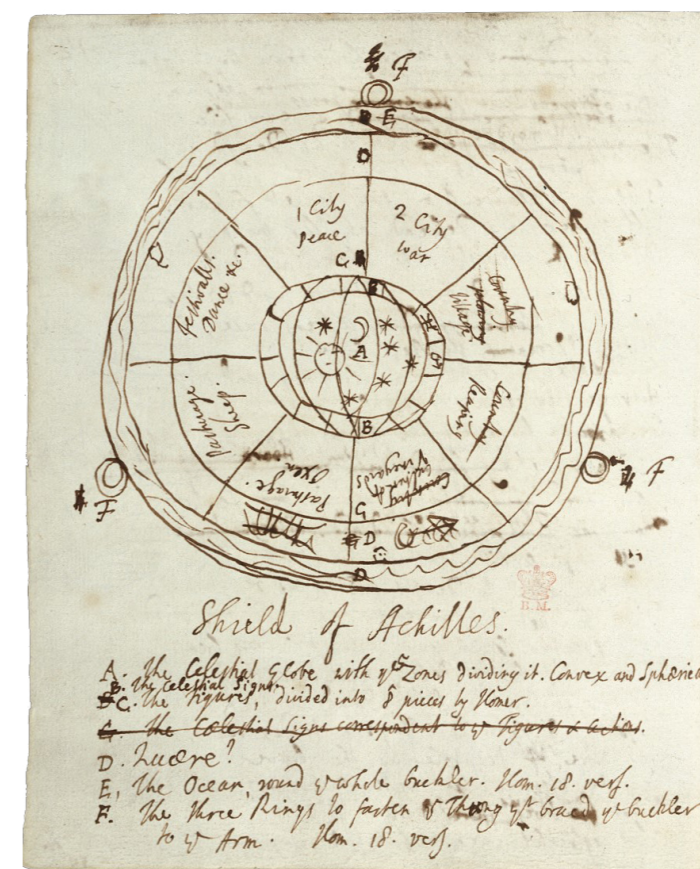 F
E
D
1 City
Peace
2 City
War
C
B
D
D
Festivalls.
Dance &c.
Country
Village
A
Country
Reaping
Pasturage.
Sheep.
B
Pasturage.
Oxen
Country
Vineyards
D
D
F
F
B.M.
Shield of Achilles.
A. The Celestial Globe with ye Zones dividing it. Convex and Sphæried
B. The Celestial Signs.
C. The figures, divided into 8 pieces by Homer.
G. The Cœlestial Signs correspondent to ye Figures & Actions.
D. Quære?
E, The Ocean, round ye whole buckler. Hom. 18. vers.
F. The three Rings to fasten ye Thong yt braced ye buckler
to ye Arm. Hom. 18. vers.